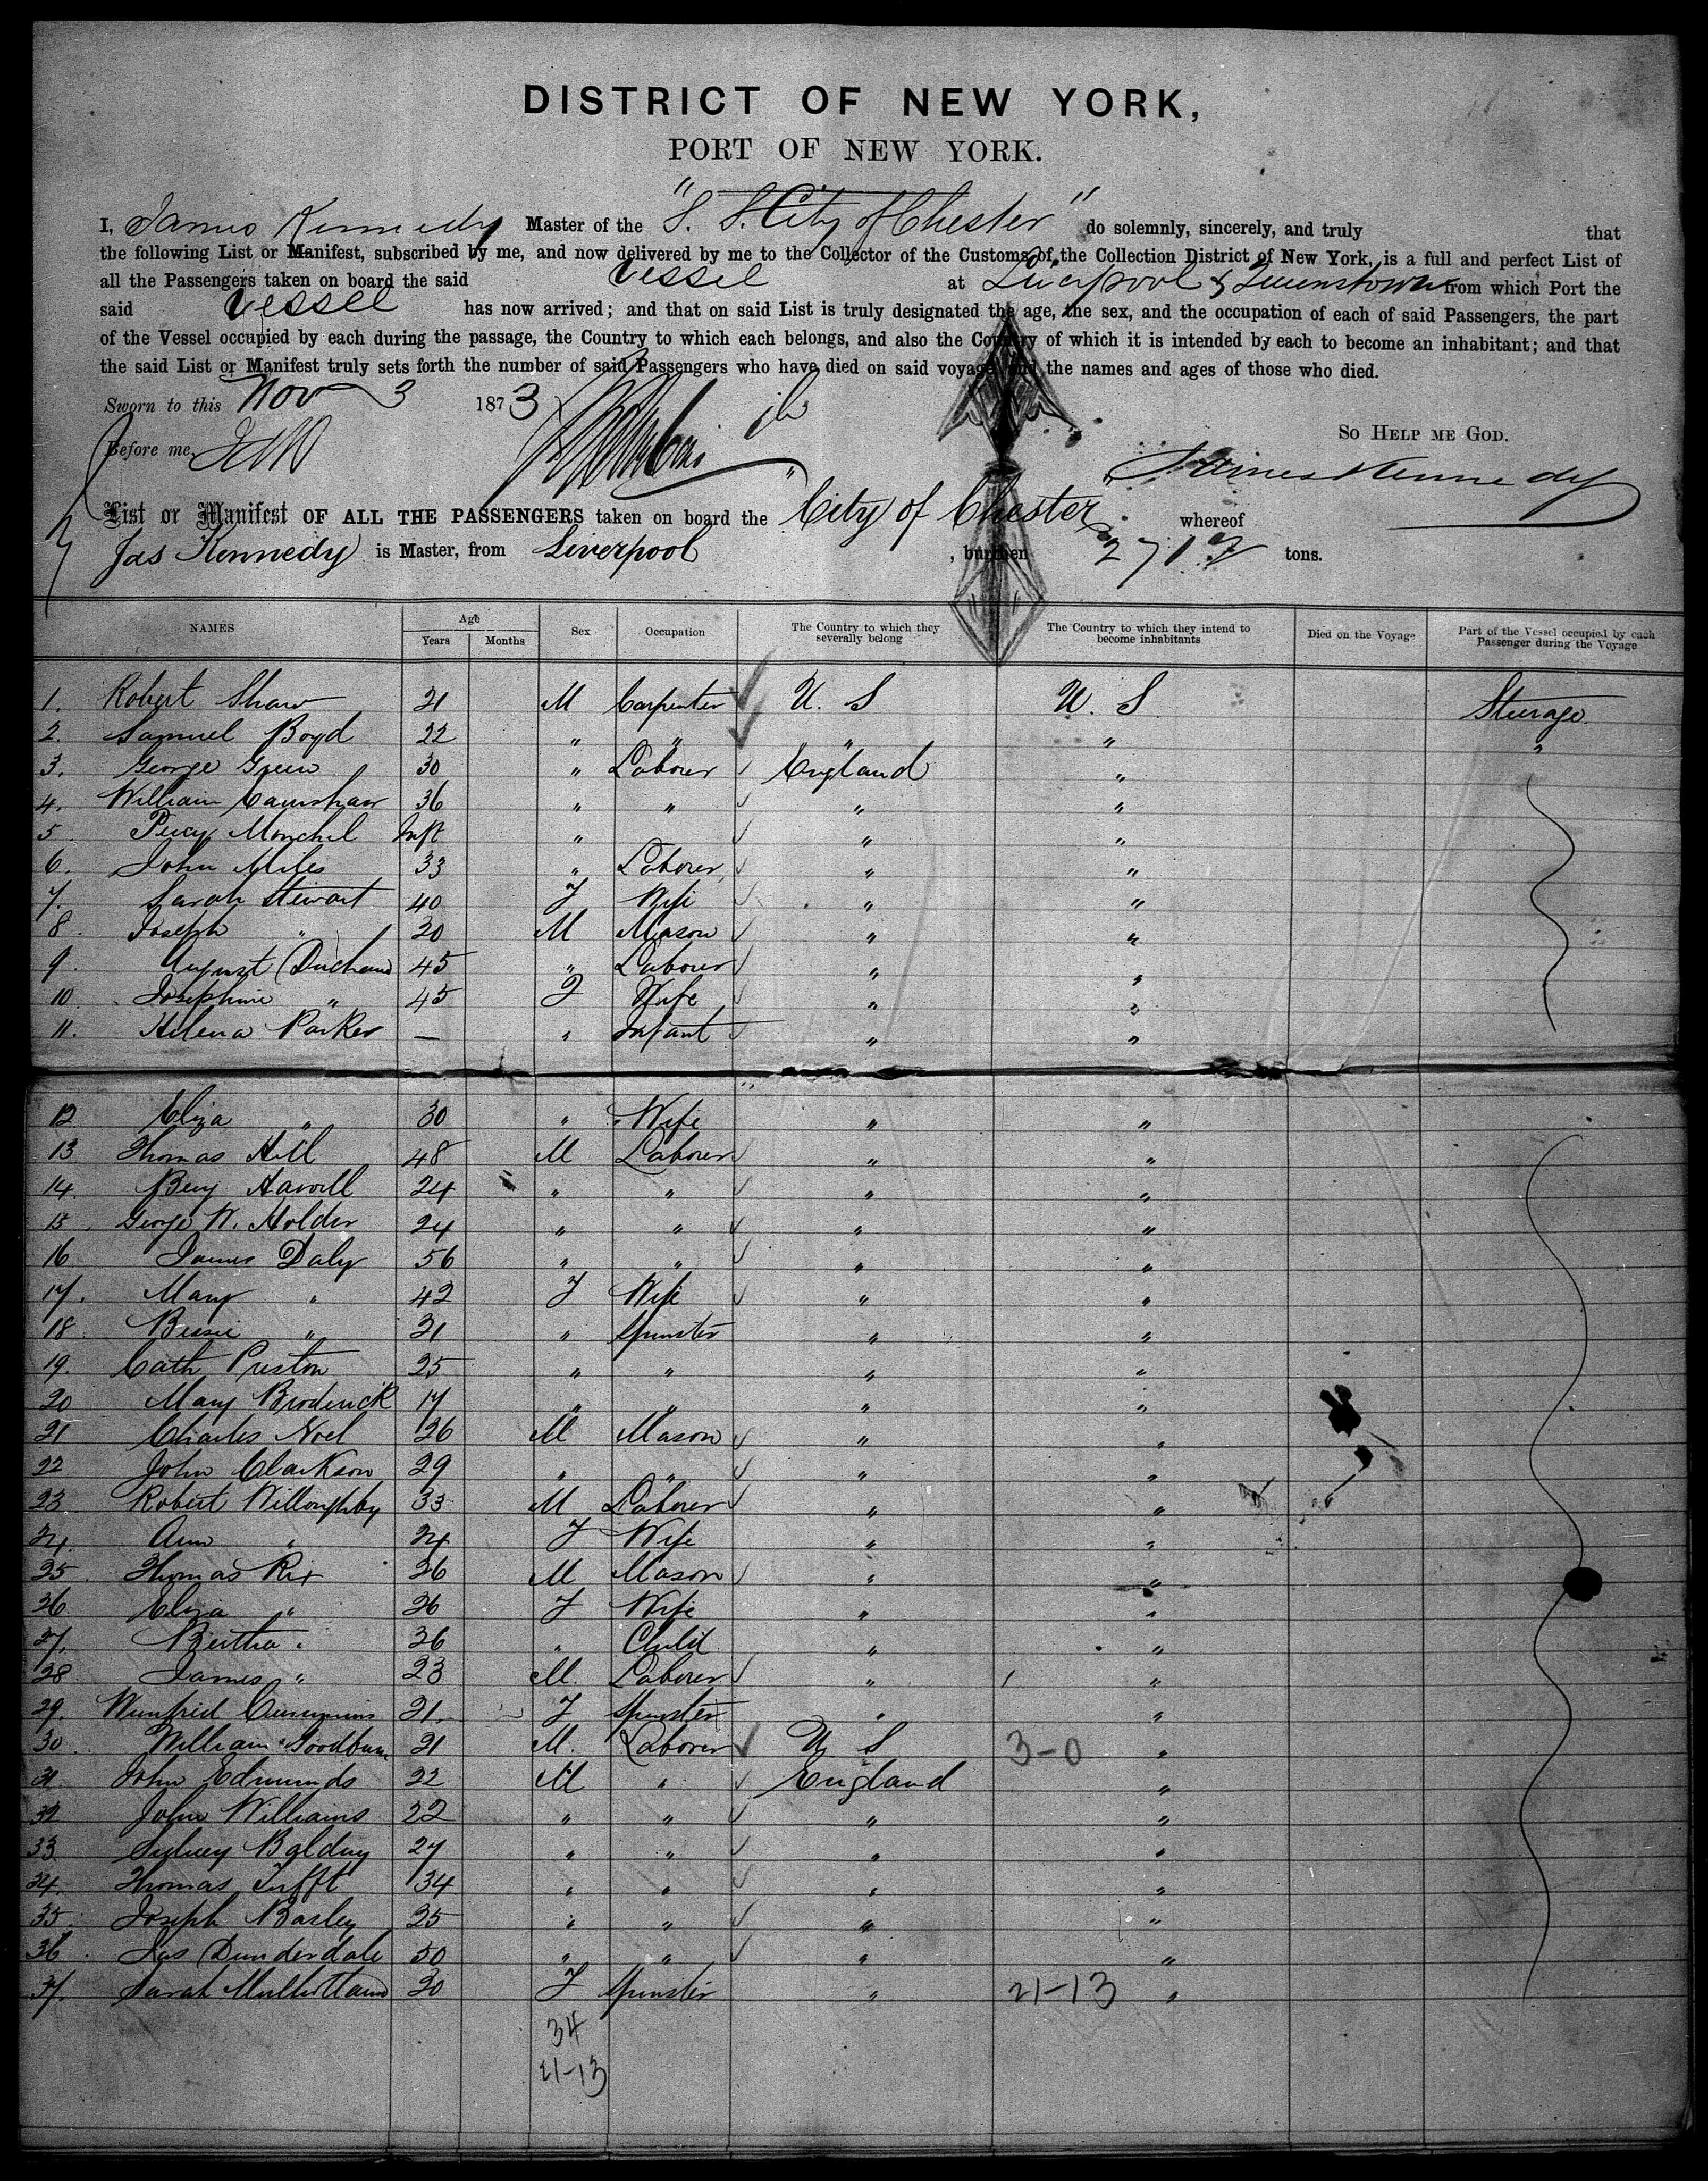 DISTRICT OF NEW YORK,
PORT OF NEW YORK.
I, James Kennedy Master of the "S. S. City of Chester" do solemnly, sincerely, and truly that
the following List or Manifest, subscribed by me, and now delivered by me to the Collector of the Customs of the Collection District of New York, is a full and perfect List of
all the Passengers taken on board the said vessel at Liverpool & Queenstown from which Port the
said vessel has now arrived; and that on said List is truly designated the age, the sex, and the occupation of each of said Passengers, the part
of the Vessel occupied by each during the passage, the Country to which each belongs, and also the Country of which it is intended by each to become an inhabitant; and that
the said List or Manifest truly sets forth the number of said Passengers who have died on said voyage and the names and ages of those who died.
Sworn to this Nov 3 1873
So Help me God.
Before me,
James Kennedy
List or Manifest OF ALL THE PASSENGERS taken on board the "City of Chester" whereof
Jas Kennedy is Master, from Liverpool , burthen 2713 tons.
NAMES Age Years Months Sex Occupation The Country to which they severally belong The Country to which they intend to become inhabitants Died on the Voyage Part of the Vessel occupied by each Passenger during the Voyage
1. Robert Shaw 21 M Carpenter U. S U. S Steerage
2. Samuel Boyd 22 " " " " "
3. George Green 30 " Labourer England "
4. William Camshaw 36 " " " "
5 Percy Inft " " "
6. John Miles 33 " Laborer " "
7. Sarah Stewart 40 F Wife " "
8. Joseph " 30 M Mason " "
9. August Duchand 45 " Labourer " "
10. Josephine " 45 F Wife " "
11. Helena Parker — " Infant " "
12 Eliza " 30 " Wife " "
13 Thomas Hill 48 M Laborer " "
14. Benj Harvill 24 " " " "
15. George W. Holder 24 " " " "
16 James Daly 56 " " " "
17. Mary " 42 F Wife " "
18. Bessie " 21 " Spinster " "
19. Cath Preston 25 " " " "
20 Mary Broderick 17 " " " "
21 Charles Noel 26 M Mason " "
22 John Clarkson 29 " " " "
23 Robert Willoughby 33 M Laborer " "
24. Ann " 24 F Wife " "
25 Thomas Rix 26 M Mason " "
26 Eliza " 26 F Wife " "
27. Bertha " 36 " Child " "
28 James " 23 M. Laborer " "
29. Winifrid Cummins 21. F Spinster " "
30. William Goodburn 21 M. Laborer U S 3-0 "
31. John Edmunds 22 M " England "
32 John Williams 22 " " " "
33 Sydney Balding 27 " " " "
34. Thomas Tufft 34 " " " "
35. Joseph Basley 25 " " " "
36. Jas Dunderdale 50 " " " "
37. Sarah 20 F Spinster " 21-13 "
34
21-13